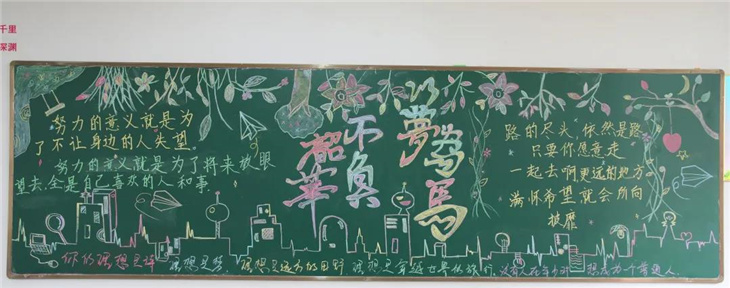 千里
深渊
努力的意义就是为
了不让身边的人失望
努力的意义就是为了将来放眼
望去,全是自己喜欢的人和事
以梦为马
不负韶华
路的尽头 依然是路
只要你愿意走
一起去啊更远的地方
满怀希望就会所向
披靡
你的理想是诗 理想是梦 理想是远方的田野 理想是穿越世界的旅行 没有人 想成为个普通人